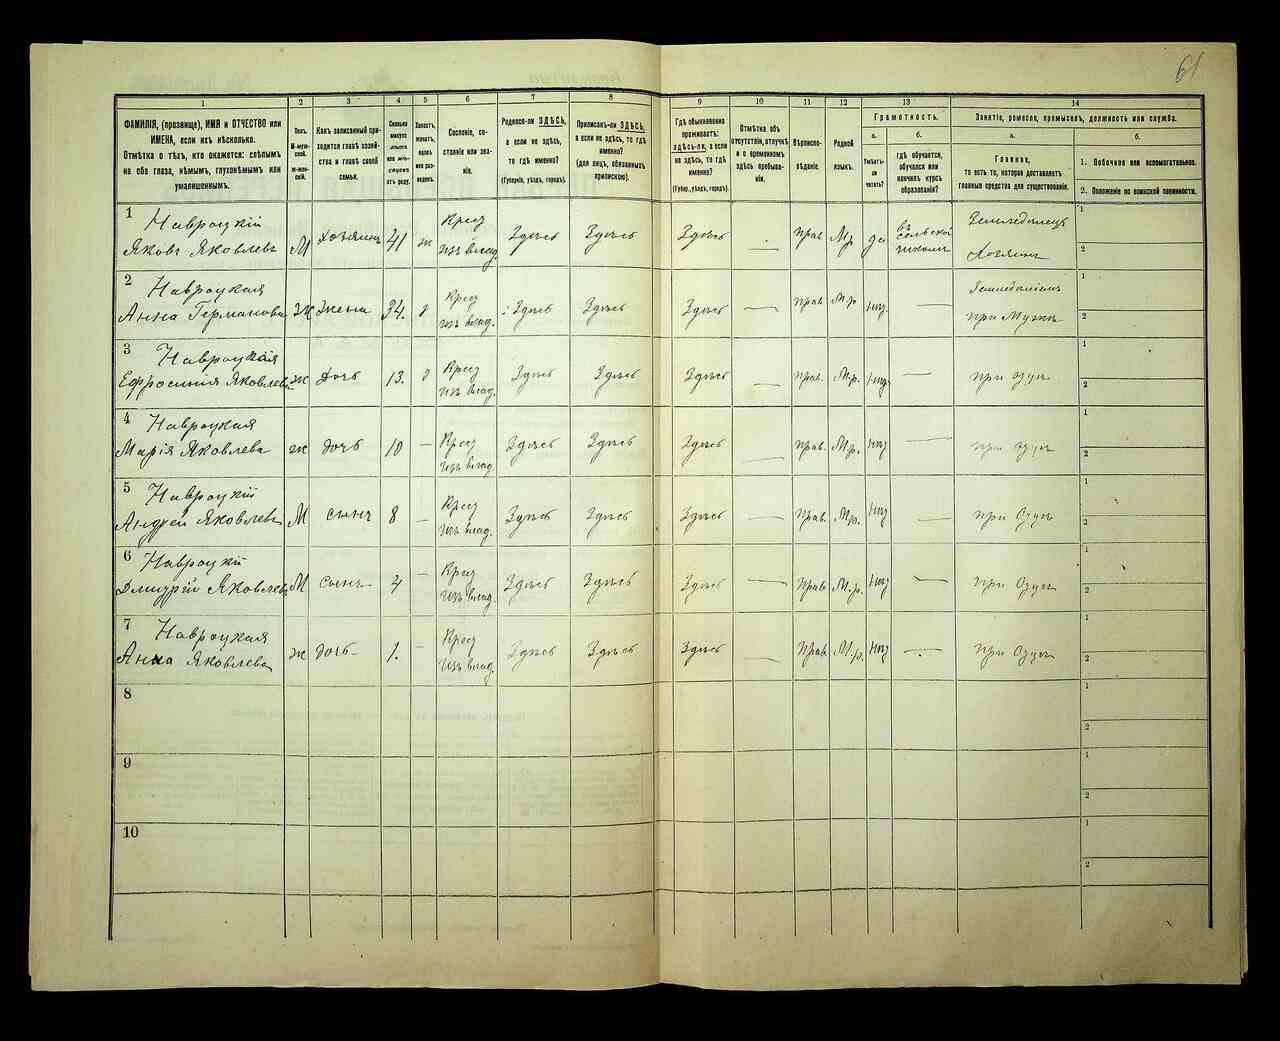 61
1 2 3 4 5 6 7 8 9 10 11 12 13 14
ФАМИЛІЯ, (прозвище), ИМЯ и ОТЧЕСТВО или
ИМЕНА, если ихъ нѣсколько.
Отмѣтка о тѣхъ, кто окажется: слѣпымъ
на оба глаза, нѣмымъ, глухонѣмымъ или
умалишеннымъ.
Полъ.
М-мужской.
Ж-женскій.
Какъ записанный приходится
главѣ хозяйства
и главѣ своей
семьи.
Сколько
минуло
лѣтъ
отъ роду.
Холостъ,
женатъ,
вдовъ
или разведенъ.
Сословіе, состояніе
или званіе.
Родился-ли ЗДѢСЬ,
а если не здѣсь,
то гдѣ именно?
(Губернія, уѣздъ, городъ).
Приписанъ-ли ЗДѢСЬ,
а если не здѣсь, то гдѣ
именно?
(для лицъ, обязанныхъ
припискою).
Гдѣ обыкновенно
проживаетъ:
ЗДѢСЬ-ли, а если
не здѣсь, то гдѣ
именно?
(Губер., уѣздъ, городъ).
Отмѣтка объ
отсутствіи, отлучкѣ
и о временномъ
здѣсь пребываніи.
Вѣроисповѣданіе.
Родной
языкъ.
Грамотность.
а.
Умѣетъ-ли
читать?
б.
гдѣ обучается,
обучался или
кончилъ курсъ
образованія?
Занятіе, ремесло, промыселъ, должность или служба.
а.
Главное,
то есть то, которое доставляетъ
главныя средства для существованія.
б.
1. Побочное или вспомогательное.
2. Положеніе по воинской повинности.
1 Навроцкій
Яковъ Яковлевъ М Хозяинъ 41 ж Крест изъ влад. Здѣсь Здѣсь Здѣсь — прав. М.р. да въ сельской школѣ Земледѣлецъ Хозяинъ 1 2
2 Навроцкая
Анна Германова Ж Жена 34. з Крест изъ влад. Здѣсь Здѣсь Здѣсь — прав. М.р. нѣт — Земледѣліемъ при Мужѣ 1 2
3 Навроцкая
Ефросинія Яковлева ж Дочь 13. д Крест изъ влад. Здѣсь Здѣсь Здѣсь — прав. М.р. нѣт — при отцѣ 1 2
4 Навроцкая
Марія Яковлева ж дочь 10 — Крест изъ влад. Здѣсь Здѣсь Здѣсь — прав. М.р. нѣт — при отцѣ 1 2
5 Навроцкій
Андрей Яковлевъ М сынъ 8 — Крест изъ влад. Здѣсь Здѣсь Здѣсь — Прав. М.р. нѣт — при Отцѣ 1 2
6 Навроцкій
Дмитрій Яковлевъ М сынъ 4 — Крест изъ влад. Здѣсь Здѣсь Здѣсь — Прав. М.р. нѣт — при Отцѣ 1 2
7 Навроцкая
Анна Яковлева ж дочь 1. — Крест изъ влад. Здѣсь Здѣсь Здѣсь — Прав. М.р. нѣт — при Отцѣ 1 2
8 1 2
9 1 2
10 1 2